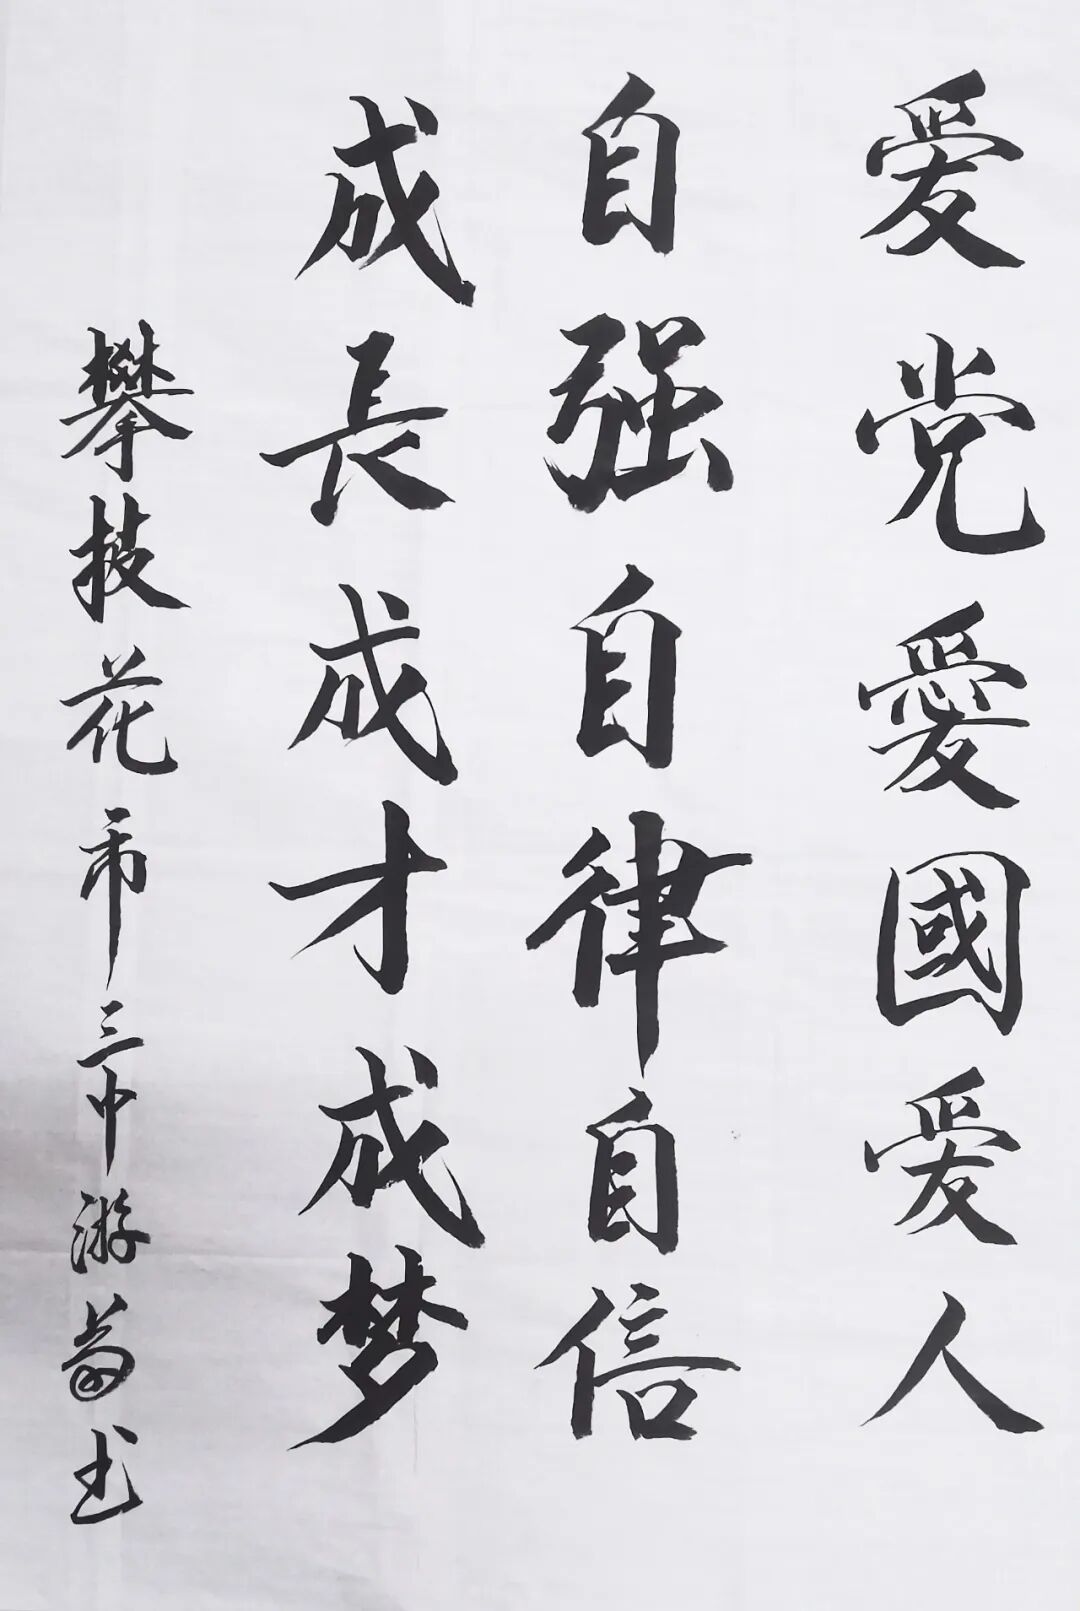 爱党愛國爱人
自强自律自信
成長成才成梦
攀枝花市三中游书